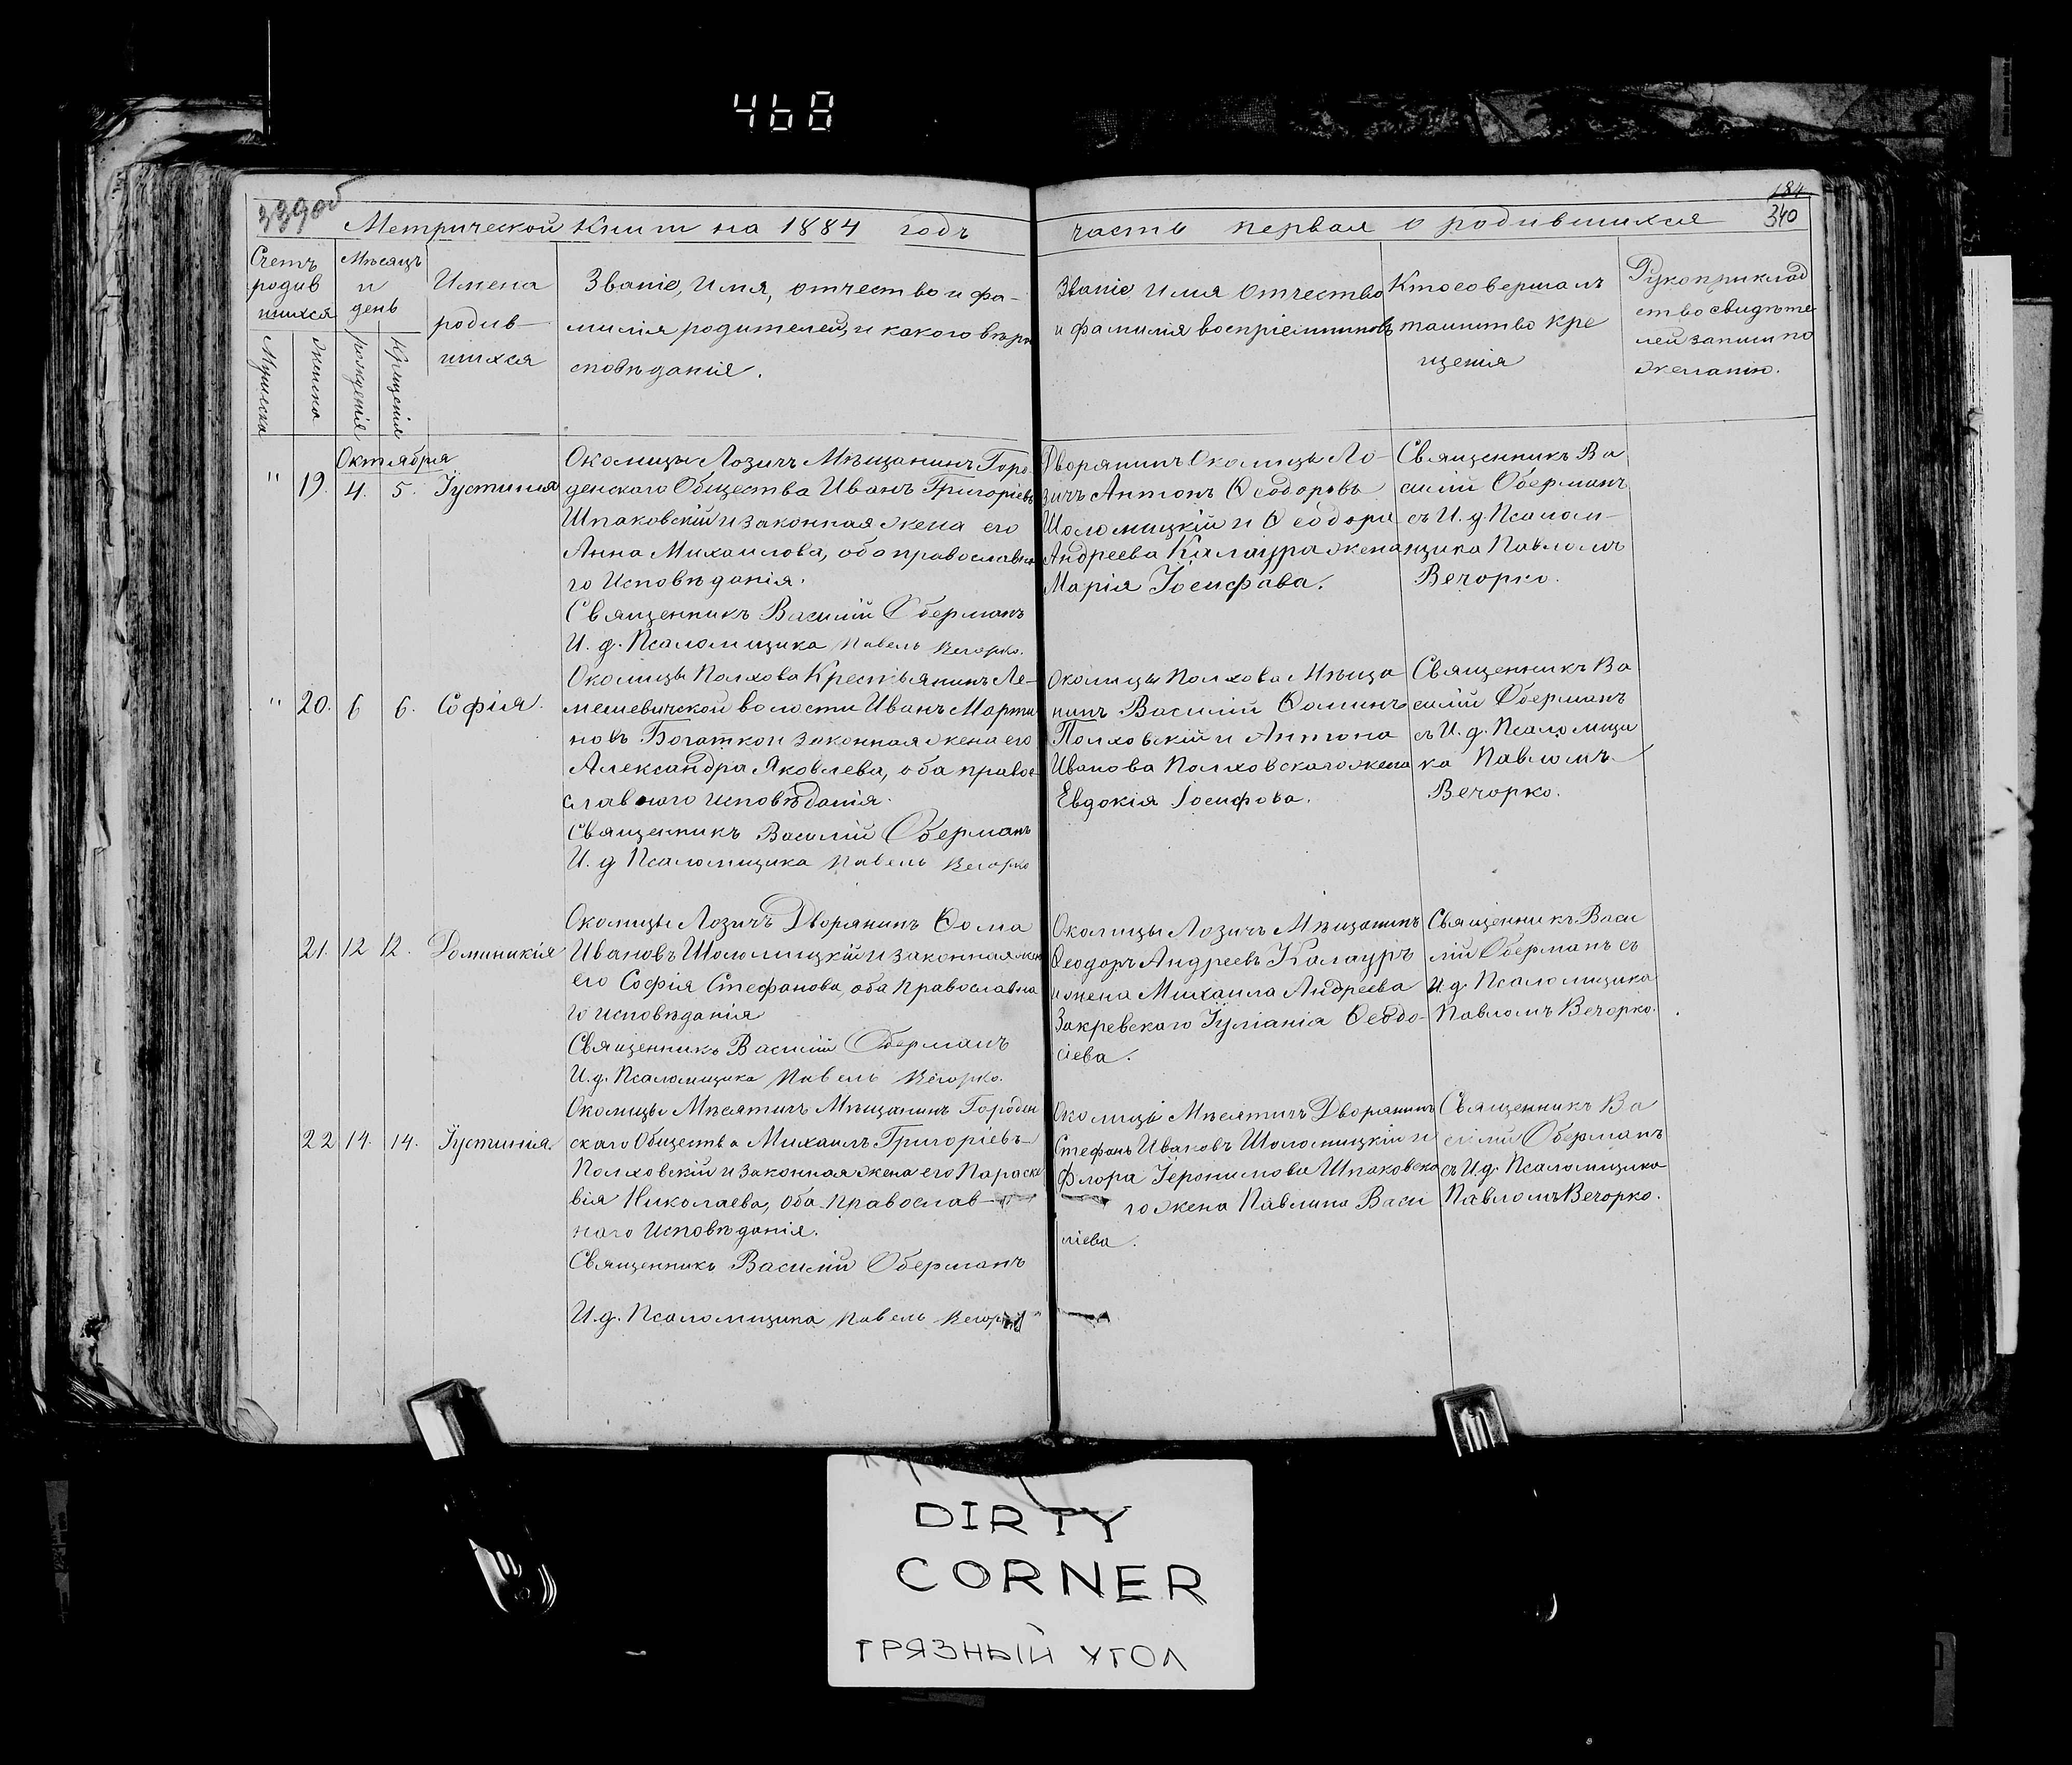 468
339об
Метрической Книги на 1884 годъ
часть первая о родившихся
184
340
Счетъ
родив
шихся
Мужеска
Женска
Мѣсяцъ
и
день
рожденія
Крещенія
Имена
родив-
шихся
Званіе, Имя, отчество и фа-
милія родителей, и какого вѣро
исповѣданія.
Званіе Имя Отчество
и фамилія воспріемниковъ
Кто совершалъ
таинство кре
щенія
Рукоприклад
ство свидѣте
лей записи по
желанію.
Октября
" 19. 4. 5. Іустинія
Околицы Лозичъ Мѣщанинъ Горо-
денскаго Общества Иванъ Григоріевъ
Шпаковскій и законная жена его
Анна Михаилова, оба православна
го Исповѣданія.
Священникъ Василій Оберманъ
И. д. Псаломщика Павелъ Вечорко.
Дворянинъ Околицы Ло-
зичъ Антонъ Ѳеодоровъ
Шоломицкій и Ѳеодора
Андреева Калаура жена
Марія Іосифова.
Священникъ Ва
силій Оберманъ
съ И. д. Псалом-
щика Павломъ
Вечорко.
" 20. 6 6. Софія.
Околицы Полхова Крестьянинъ Ле-
мешевичской волости Иванъ Марти
новъ Богатко и законная жена его
Александра Яковлева, оба право-
славного исповѣданія.
Священникъ Василій Оберманъ
И. д Псаломщика Павелъ Вечорко
Околицы Полхова Мѣща
нинъ Василій Ѳоминъ
Полховскій и Антона
Иванова Полховскаго жена
Евдокія Іосифова.
Священникъ Ва
силій Оберманъ
съ И. д. Псаломщи
ка Павломъ
Вечорко.
21. 12 12. Доминикія
Околицы Лозичъ Дворянинъ Ѳома
Ивановъ Шоломицкій и законная жена
его Софія Стефанова, оба Православна
го исповѣданія
Священникъ Василій Оберманъ
И. д. Псаломщика Павелъ Вечорко.
Околицы Лозичъ Мѣщанинъ
Ѳеодоръ Андреевъ Калауръ
и жена Михаила Андреева
Закревскаго Іуліанія Ѳеодо-
сіева.
Священникъ Васи
лій Оберманъ съ
И. д. Псаломщика
Павломъ Вечорко.
22 14. 14. Іустинія.
Околицы Мѣсятичъ Мѣщанинъ Городен
скаго Общества Михаилъ Григоріевъ
Полховскій и законная жена его Параске
вія Николаева, оба Православ-
наго Исповѣданія.
Священникъ Василій Оберманъ
И. д. Псаломщика Павелъ Вечорко
Околицы Мѣсятичъ Дворянинъ
Стефанъ Ивановъ Шоломицкій и
Флора Іеронимова Шпаковска
го жена Павлина Васи
ліева.
Священникъ Ва
силій Оберманъ
съ И. д. Псаломщика
Павломъ Вечорко.
DIRTY
CORNER
ГРЯЗНЫЙ УГОЛ